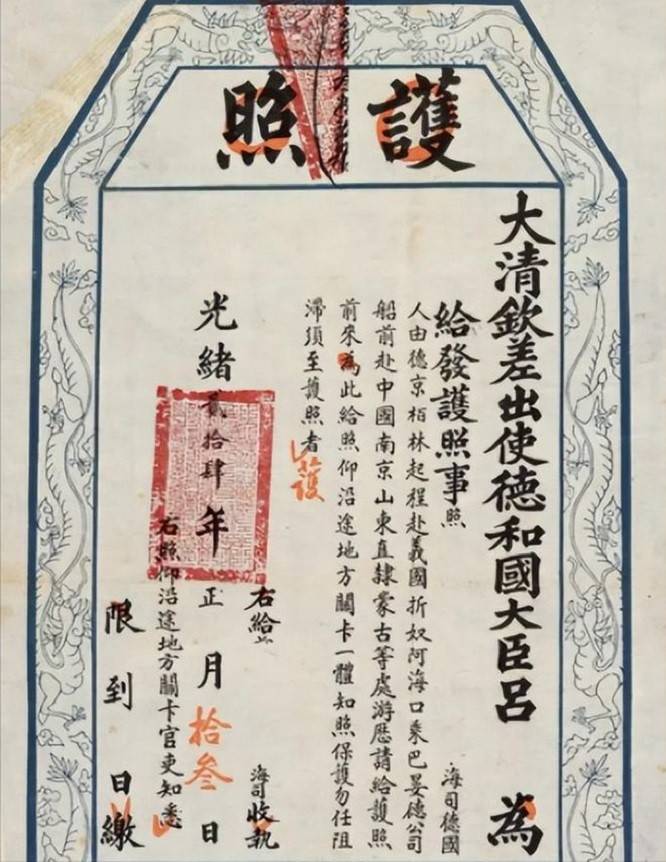 護照
大清欽差出使德和國大臣呂 為
給發護照事照 海司德國
人由德京栢林起程赴義國折奴阿海口乘巴晏德公司
船前赴中國南京山東直隸蒙古等處游歷請給護照
前來為此給照仰沿途地方關卡一體知照保護勿任阻
滯須至護照者
護
右給 海司收執
光緒貳拾肆年正月拾叁日
右照仰沿途地方關卡官吏知悉
限到日繳